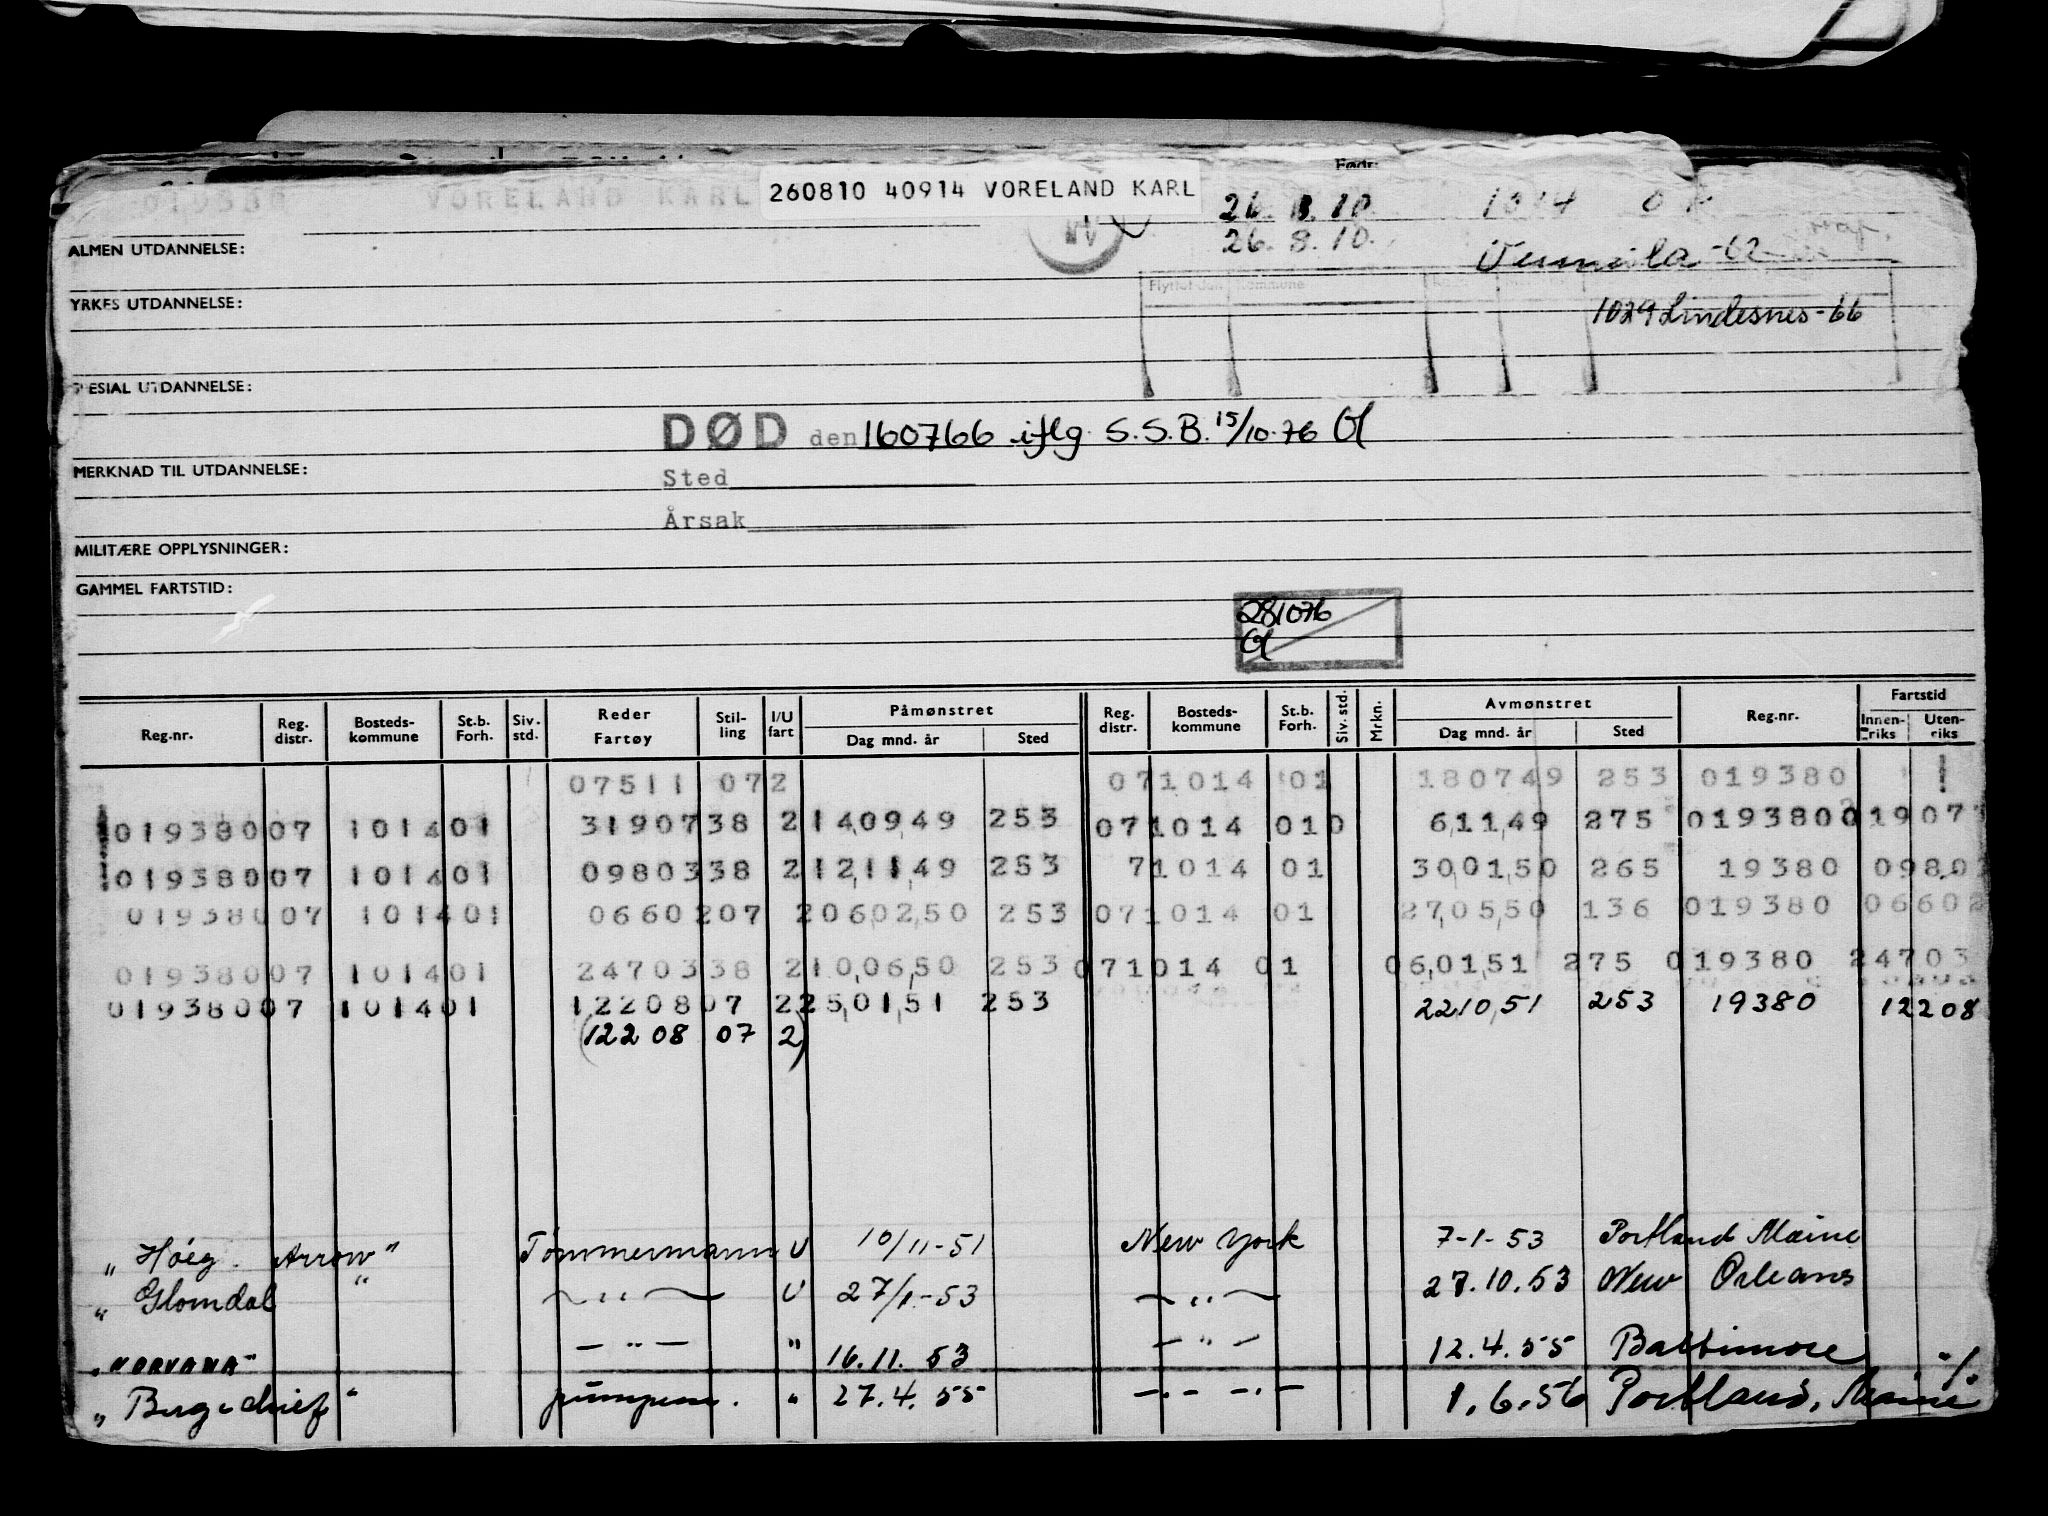 Født:
260810 40914 VORELAND KARL
VORELAND KARL
26. 8. 10.
26. 8. 10.
ALMEN UTDANNELSE:
-62
YRKES UTDANNELSE:
1029 Lindesnes-66
SPESIAL UTDANNELSE:
DØD den 160766 iflg S.S.B. 15/10-76 Gl
MERKNAD TIL UTDANNELSE:
Sted
Årsak
MILITÆRE OPPLYSNINGER:
GAMMEL FARTSTID:
281076
Gl
Reg.nr. Reg. distr. Bosteds- kommune St.b. Forh. Siv. std. Reder Fartøy Stil- ling I/U fart Påmønstret Dag mnd. år Sted Reg. distr. Bosteds- kommune St.b. Forh. Siv. std. Mrkn. Avmønstret Dag mnd. år Sted Reg.nr. Fartstid Innen- riks Uten- riks
07511 072 071014 01 180749 253 019380
01938007 101401 3190738 2140949 253 071014 010 61149 275 019380 01907
01938007 101401 0980338 2121149 253 71014 01 300150 265 19380 0980
01938007 101401 0660207 2060250 253 071014 01 270550 136 019380 06602
01938007 101401 2470338 2100650 253 071014 01 060151 275 019380 24703
01938007 101401 1220807 2250151 253 221051 253 19380 12208
(12208 07 2)
„Höeg Arrow" Tømmermann U 10/11-51 New York 7-1-53 Portland Maine
„Glomdal " — " — U 27/1-53 — " — 27.10.53 New Orleans
„NORVANA" — " — " 16.11.53 — " — 12.4.55 Baltimore
„Bergechief" pumpem. " 27.4.55 — " — " — 1.6.56 Portland, Maine